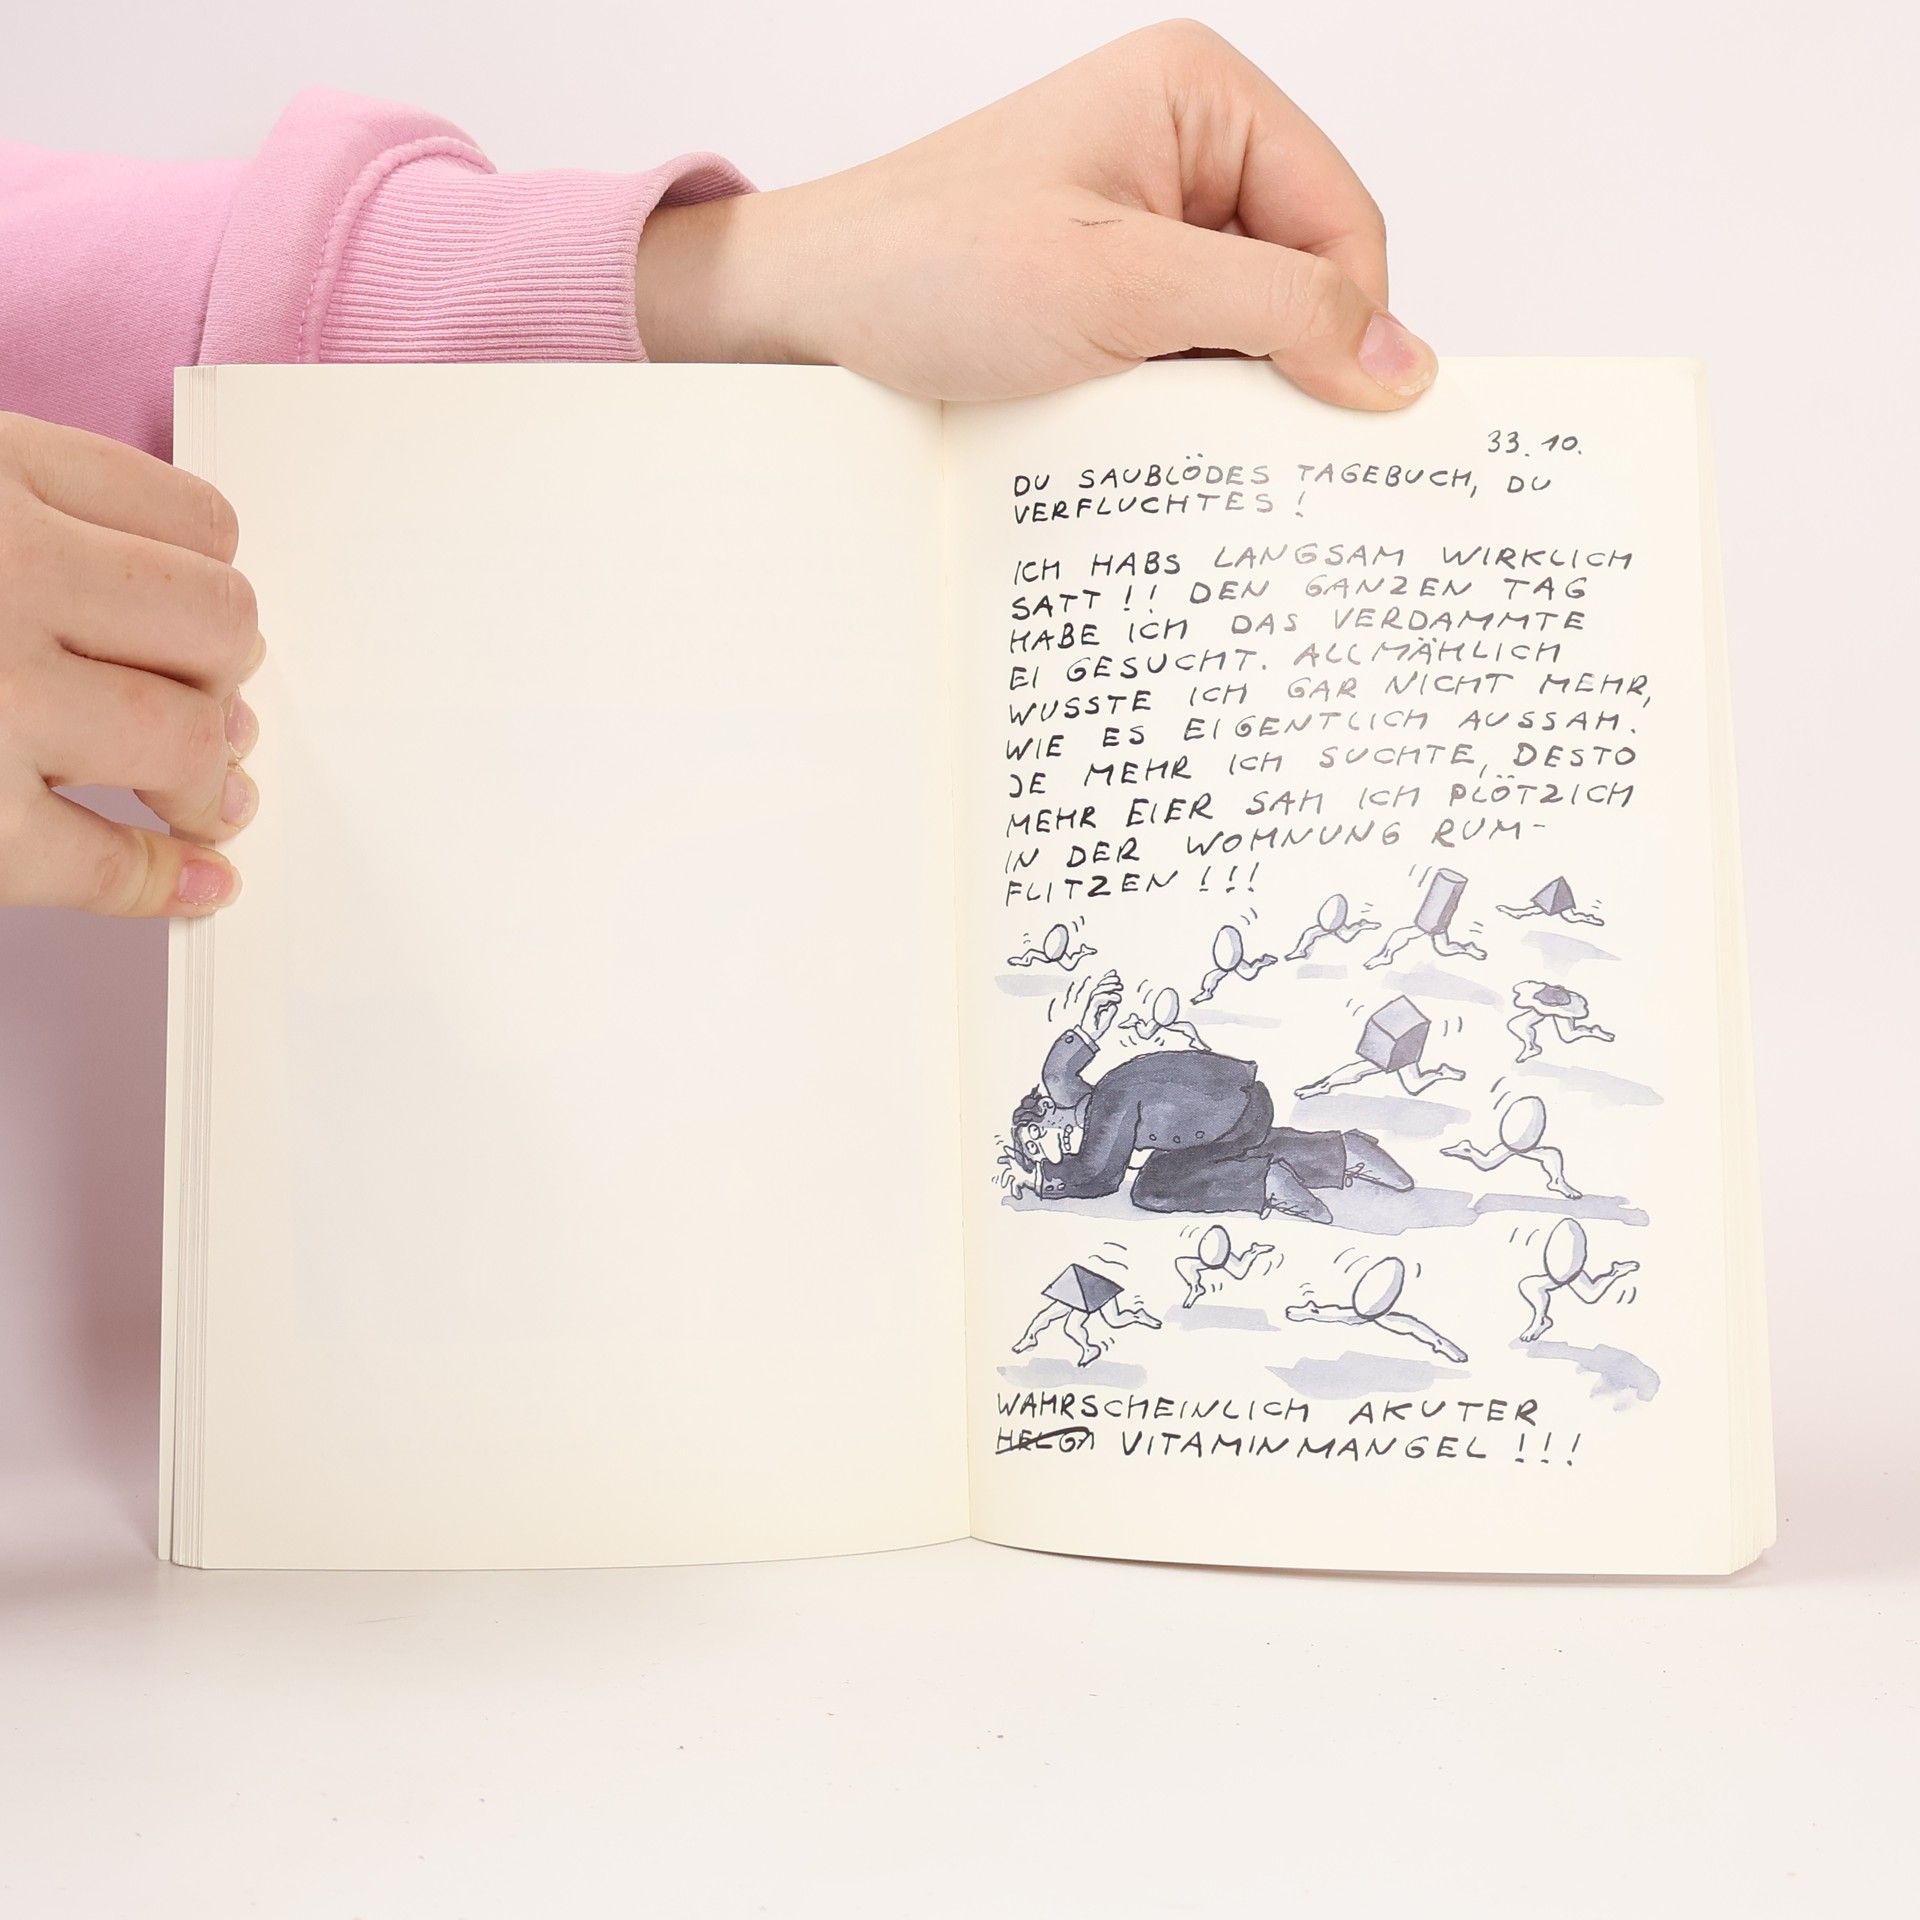 33.10.
DU SAUBLÖDES TAGEBUCH, DU
VERFLUCHTES!
ICH HABS LANGSAM WIRKLICH
SATT!! DEN GANZEN TAG
HABE ICH DAS VERDAMMTE
EI GESUCHT. ALLMÄHLICH
WUSSTE ICH GAR NICHT MEHR,
WIE ES EIGENTLICH AUSSAH.
JE MEHR ICH SUCHTE, DESTO
MEHR EIER SAH ICH PLÖTZICH
IN DER WOHNUNG RUM-
FLITZEN!!!
WAHRSCHEINLICH AKUTER
HELGA VITAMINMANGEL!!!